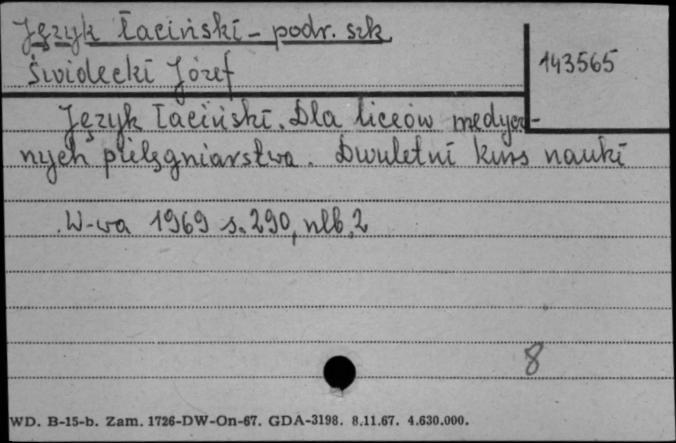 Język łaciński - podr. szk
Świdecki Józef
143565
Język łaciński. Dla liceów medycz-
nych pielęgniarstwa. Dwuletni kurs nauki
W-wa 1969 s. 290, nlb. 2
8
WD. B-15-b. Zam. 1726-DW-On-67. GDA-3198. 8.11.67. 4.630.000.